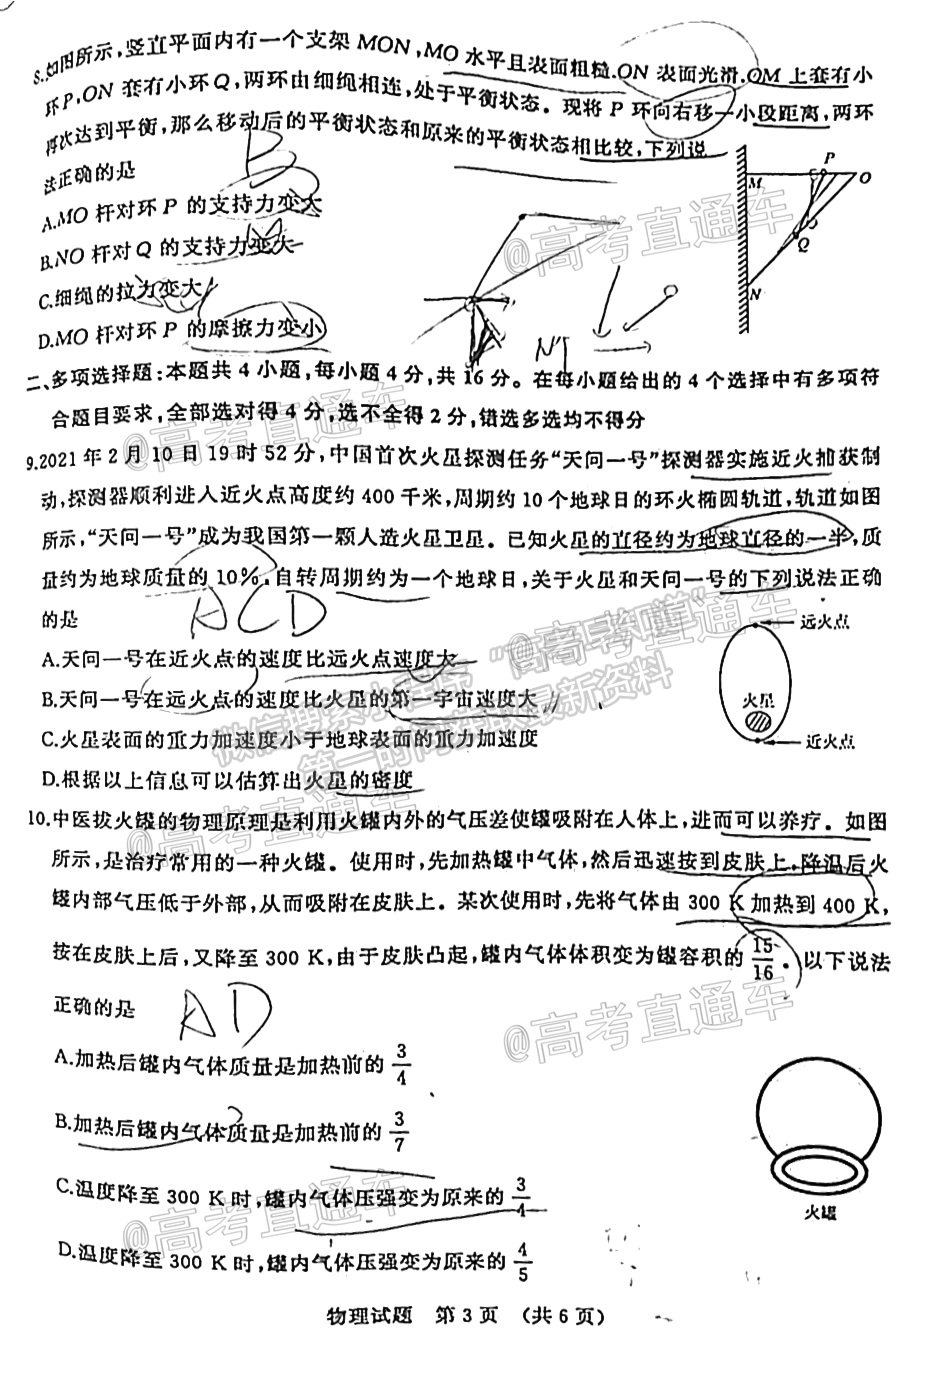 8.如图所示,竖直平面内有一个支架 MON,MO 水平且表面粗糙,ON 表面光滑,OM 上套有小
环P,ON 套有小环 Q,两环由细绳相连,处于平衡状态。现将 P 环向右移一小段距离,两环
再次达到平衡,那么移动后的平衡状态和原来的平衡状态相比较,下列说
法正确的是
B
A.MO 杆对环 P 的支持力变大
B.NO 杆对 Q 的支持力变大
C.细绳的拉力变大
D.MO 杆对环 P 的摩擦力变小
M
P
O
Q
N
N
@高考直通车
二、多项选择题:本题共 4 小题,每小题 4 分,共 16 分。在每小题给出的 4 个选择中有多项符
合题目要求,全部选对得 4 分,选不全得 2 分,错选多选均不得分
@高考直通车
9.2021 年 2 月 10 日 19 时 52 分,中国首次火星探测任务“天问一号”探测器实施近火捕获制
动,探测器顺利进入近火点高度约 400 千米,周期约 10 个地球日的环火椭圆轨道,轨道如图
所示,“天问一号”成为我国第一颗人造火星卫星。已知火星的直径约为地球直径的一半,质
量约为地球质量的 10%,自转周期约为一个地球日,关于火星和天问一号的下列说法正确
的是
ACD
A.天问一号在近火点的速度比远火点速度大
B.天问一号在远火点的速度比火星的第一宇宙速度大
C.火星表面的重力加速度小于地球表面的重力加速度
D.根据以上信息可以估算出火星的密度
远火点
火星
近火点
@高考直通车
微信搜索小程序“高考早知道”
第一时间获取最新资料
10.中医拔火罐的物理原理是利用火罐内外的气压差使罐吸附在人体上,进而可以养疗。如图
所示,是治疗常用的一种火罐。使用时,先加热罐中气体,然后迅速按到皮肤上,降温后火
罐内部气压低于外部,从而吸附在皮肤上。某次使用时,先将气体由 300 K 加热到 400 K,
按在皮肤上后,又降至 300 K,由于皮肤凸起,罐内气体体积变为罐容积的 15/16。以下说法
正确的是
AD
A.加热后罐内气体质量是加热前的 3/4
B.加热后罐内气体质量是加热前的 3/7
C.温度降至 300 K 时,罐内气体压强变为原来的 3/4
D.温度降至 300 K 时,罐内气体压强变为原来的 4/5
火罐
@高考直通车
@高考直通车
@高考直通车
物理试题 第 3 页 (共 6 页)